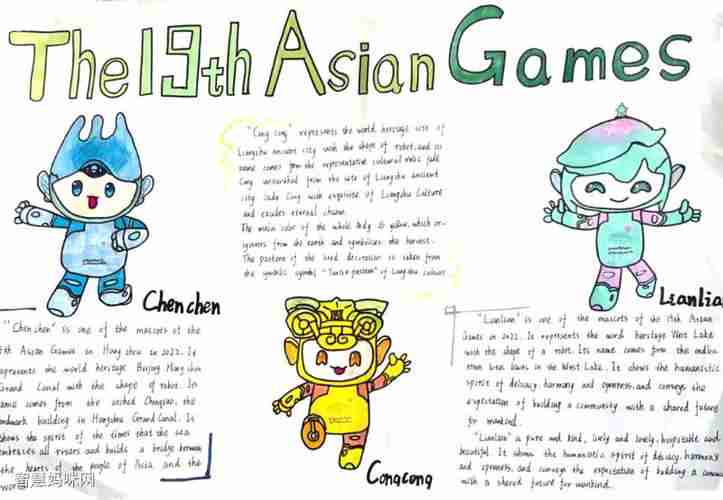 The 19th Asian Games
"Cong cong" represents the world heritage site of
Liangzhu ancient city with the shape of robot, and its
name comes from the representative cultural relic jade
Cong unearthed from the site of Liangzhu ancient
city. Jade Cong with exquisite of Liangzhu Culture
and exudes eternal charm.
The main color of the whole body is yellow, which or-
iginates from the earth and symbolizes the harvest.
The pattern of the head decoration is taken from
the symbolic symbol of Liangzhu culture
Chenchen
Lianlia
Congcong
"Chen chen" is one of the mascots of the
9th Asian Games in Hang zhou in 2022. It
epresents the world heritage Beijing Hang zhou
Grand Canal with the shape of robot. Its
name comes from the arched Chenqiao, the
andmark building in Hangzhou Grand Canal. It
shows the spirit of the times that the sea
embraces all rivers and builds a bridge between
the hearts of the people of Asia, and the
wor
"Lianlian" is one of the mascots of the 19th Asian
Games in 2022. It represents the word heritage West Lake
with the shape of a robot. Its name comes from the endless
lotus leaves in the West Lake. It shows the humanistic
spirit of delicacy, harmony and openness, and conveys the
expectation of building a community with a shared future
for mankind.
"Lianlian" is pure and kind, lively and lovely, hospitable and
beautiful. It shows the humanistic spirit of delicacy, harmony
and openness, and conveys the expectation of building a community
with a shared future for mankind.
智慧妈咪网